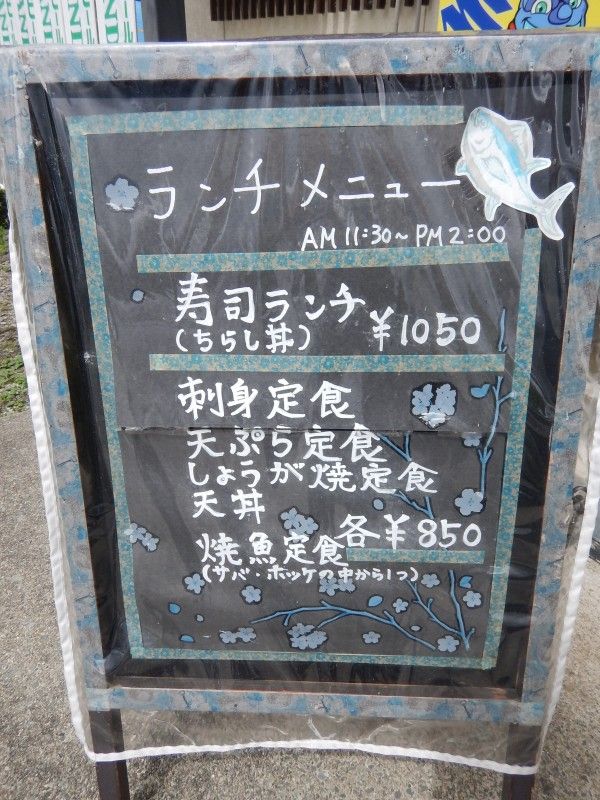 ランチメニュー
AM 11:30～PM 2:00
寿司ランチ
(ちらし丼) ¥1050
刺身定食
天ぷら定食
しょうが焼定食
天丼
各¥850
焼魚定食
(サバ・ホッケの中から1つ)